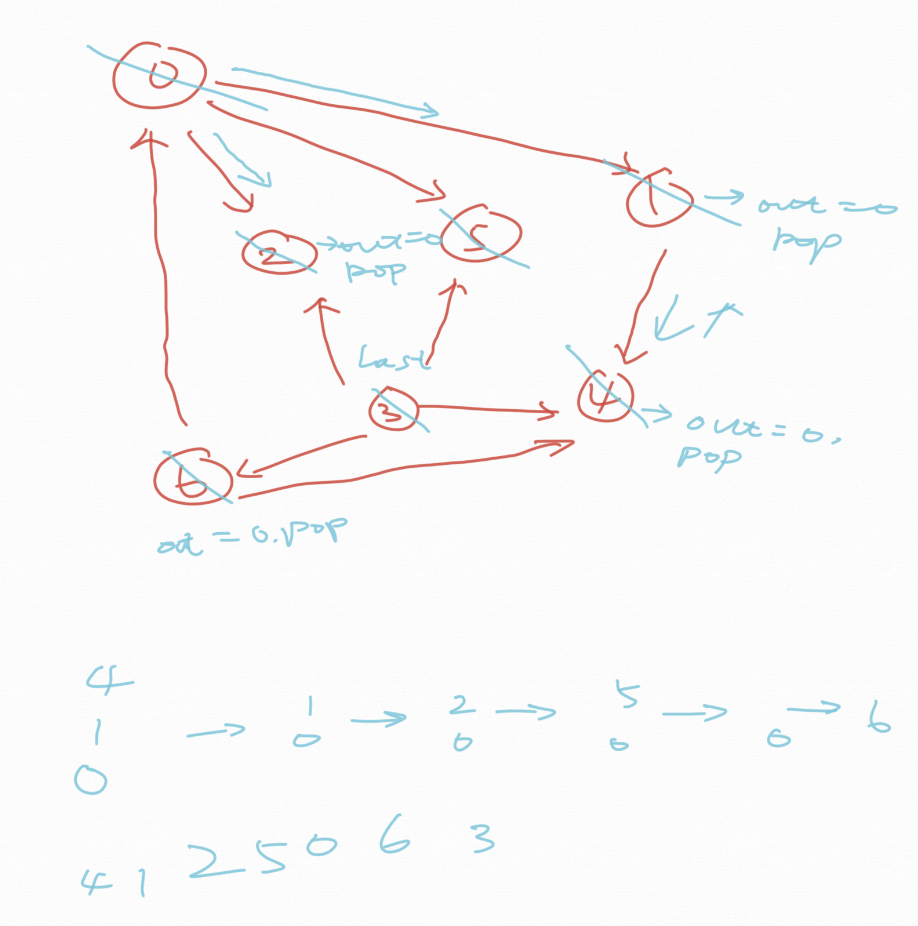 0
1
out = 0
pop
2
out = 0
pop
5
Last
3
4
out = 0.
pop
6
out = 0. pop
4
1
0
1
0
2
0
5
0
0
6
4 1 2 5 0 6 3